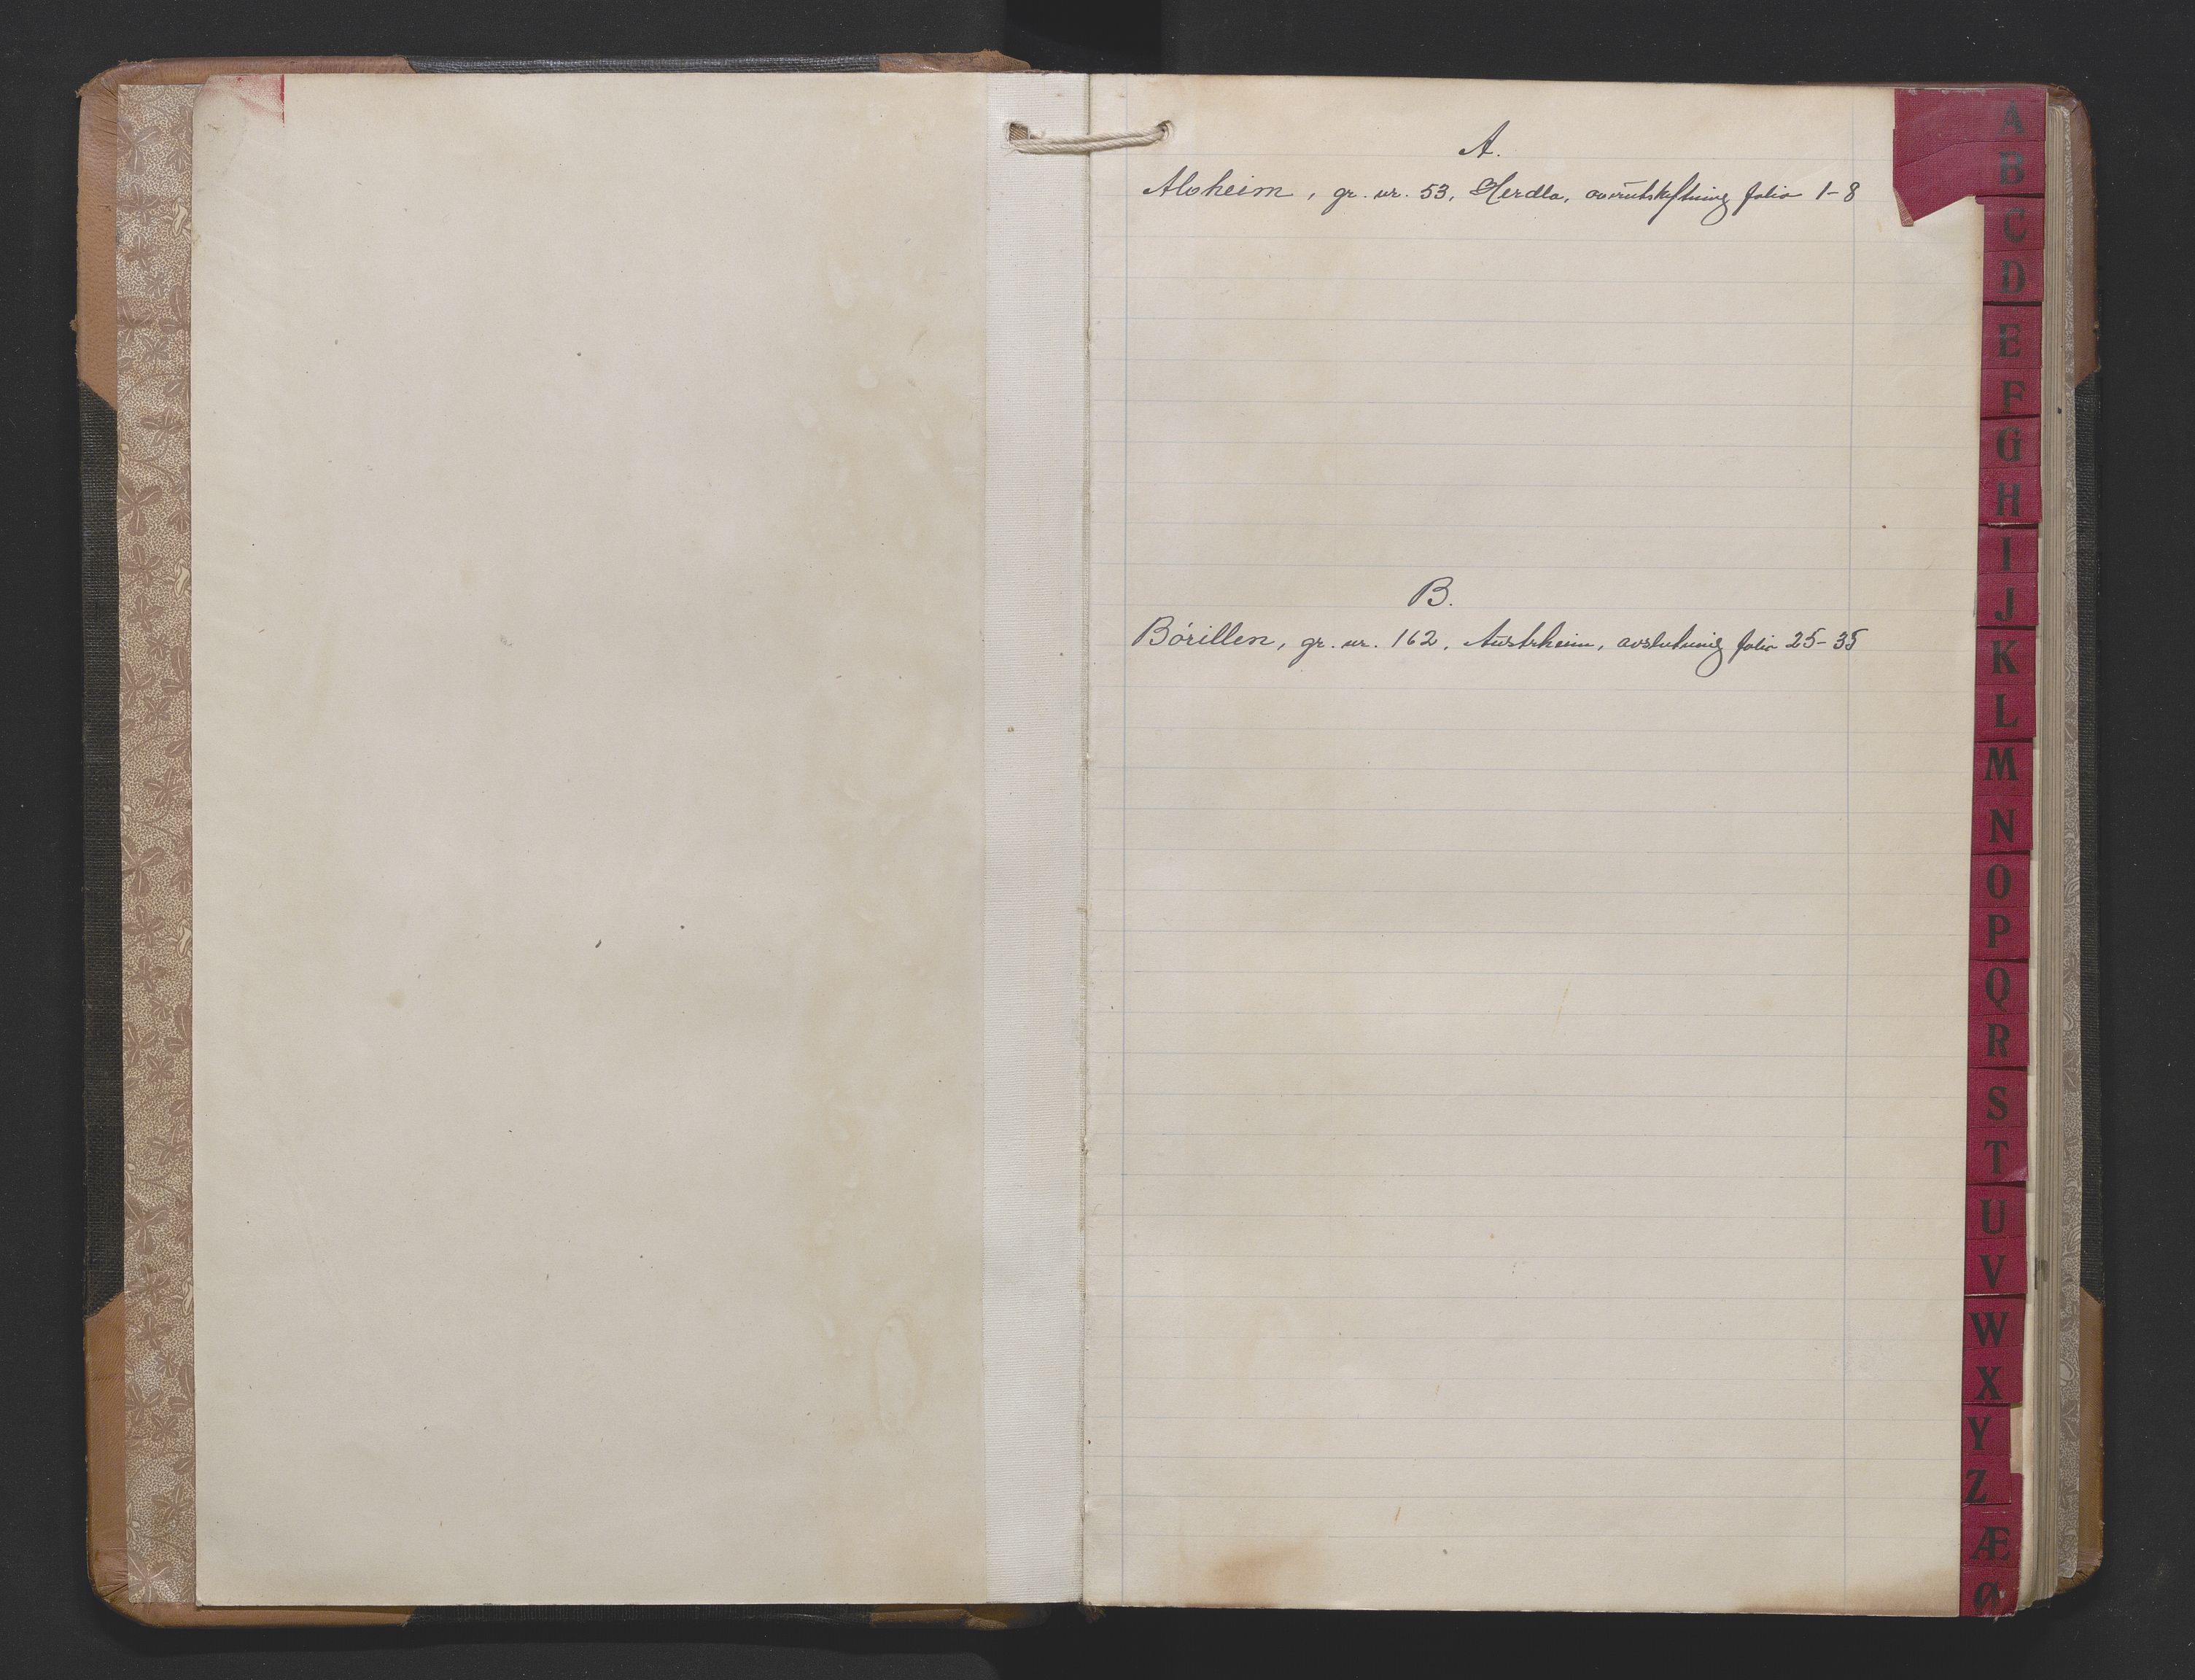 A.
Aloheim, gr. nr. 53, Herdla, overutskiftning folio 1-8
B.
Börillen, gr. nr. 162, Austrheim, avslutning folio 25-35
A
B
C
D
E
F
G
H
I
J
K
L
M
N
O
P
Q
R
S
T
U
V
W
X
Y
Z
Æ
Ø